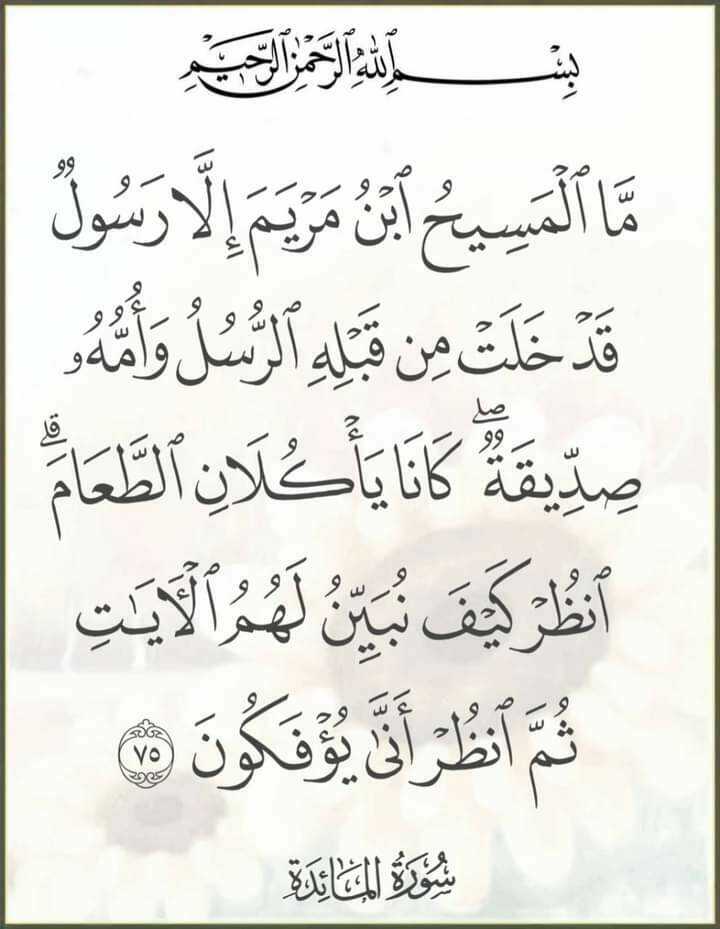 بِسْمِ ٱللَّهِ ٱلرَّحْمَٰنِ ٱلرَّحِيمِ
مَّا ٱلْمَسِيحُ ٱبْنُ مَرْيَمَ إِلَّا رَسُولٌ
قَدْ خَلَتْ مِن قَبْلِهِ ٱلرُّسُلُ وَأُمُّهُۥ
صِدِّيقَةٌ ۖ كَانَا يَأْكُلَانِ ٱلطَّعَامَ ۗ
ٱنظُرْ كَيْفَ نُبَيِّنُ لَهُمُ ٱلْءَايَٰتِ
ثُمَّ ٱنظُرْ أَنَّىٰ يُؤْفَكُونَ ٧٥
سُورَةُ المَائِدَةِ